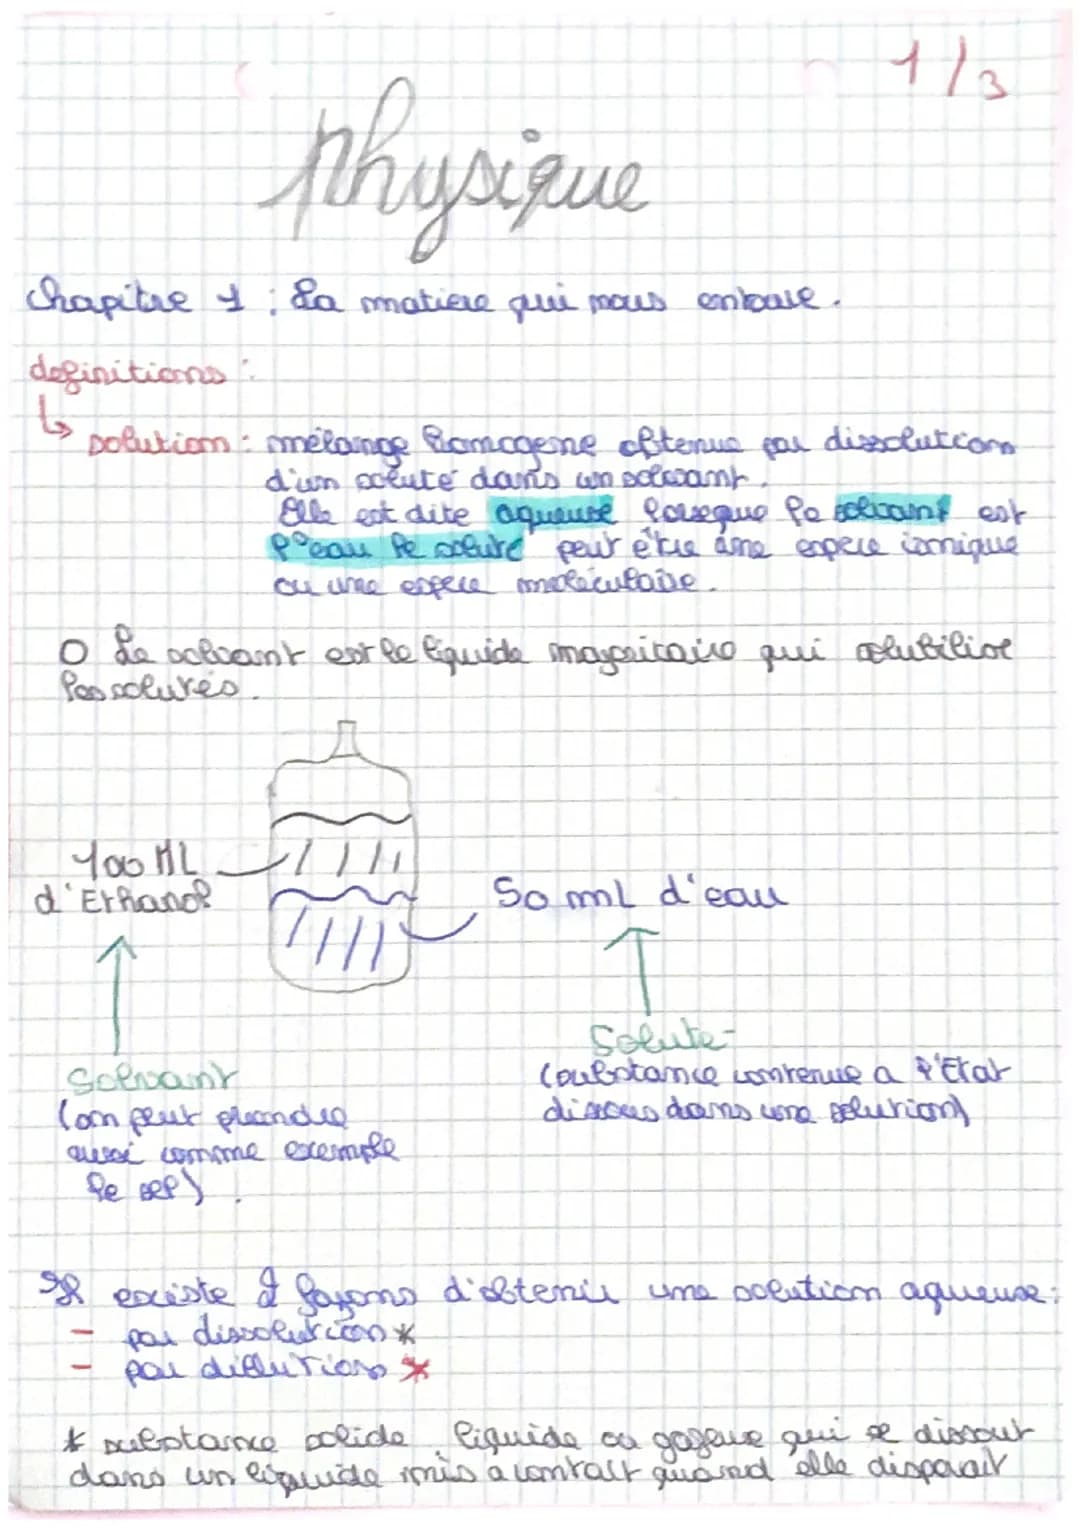 1/3
Physique
Chapitre 1 : La matiere qui nous entoure.
definitions :
↳ solution : mélange homogene obtenue par dissolution
d'un soluté dans un solvant.
Elle est dite aqueuse lorseque le solvant est
l'eau le soluté peut être une espece ionique
ou une espece moléculaire.
O Le solvant est le liquide majoritaire qui solubilise
les solutés.
100 ML
d'Ethanol
50 mL d'eau
Soluté
Solvant
(substance contenue a l'Etat
dissous dans une solution)
(on peut prendre
aussi comme exemple
le sel).
Il existe 2 façons d'obtenir une solution aqueuse :
- par dissolution *
- par dillution *
* substance solide, liquide ou gazeuse qui se dissout
dans un liquide mis a contact quand elle disparait